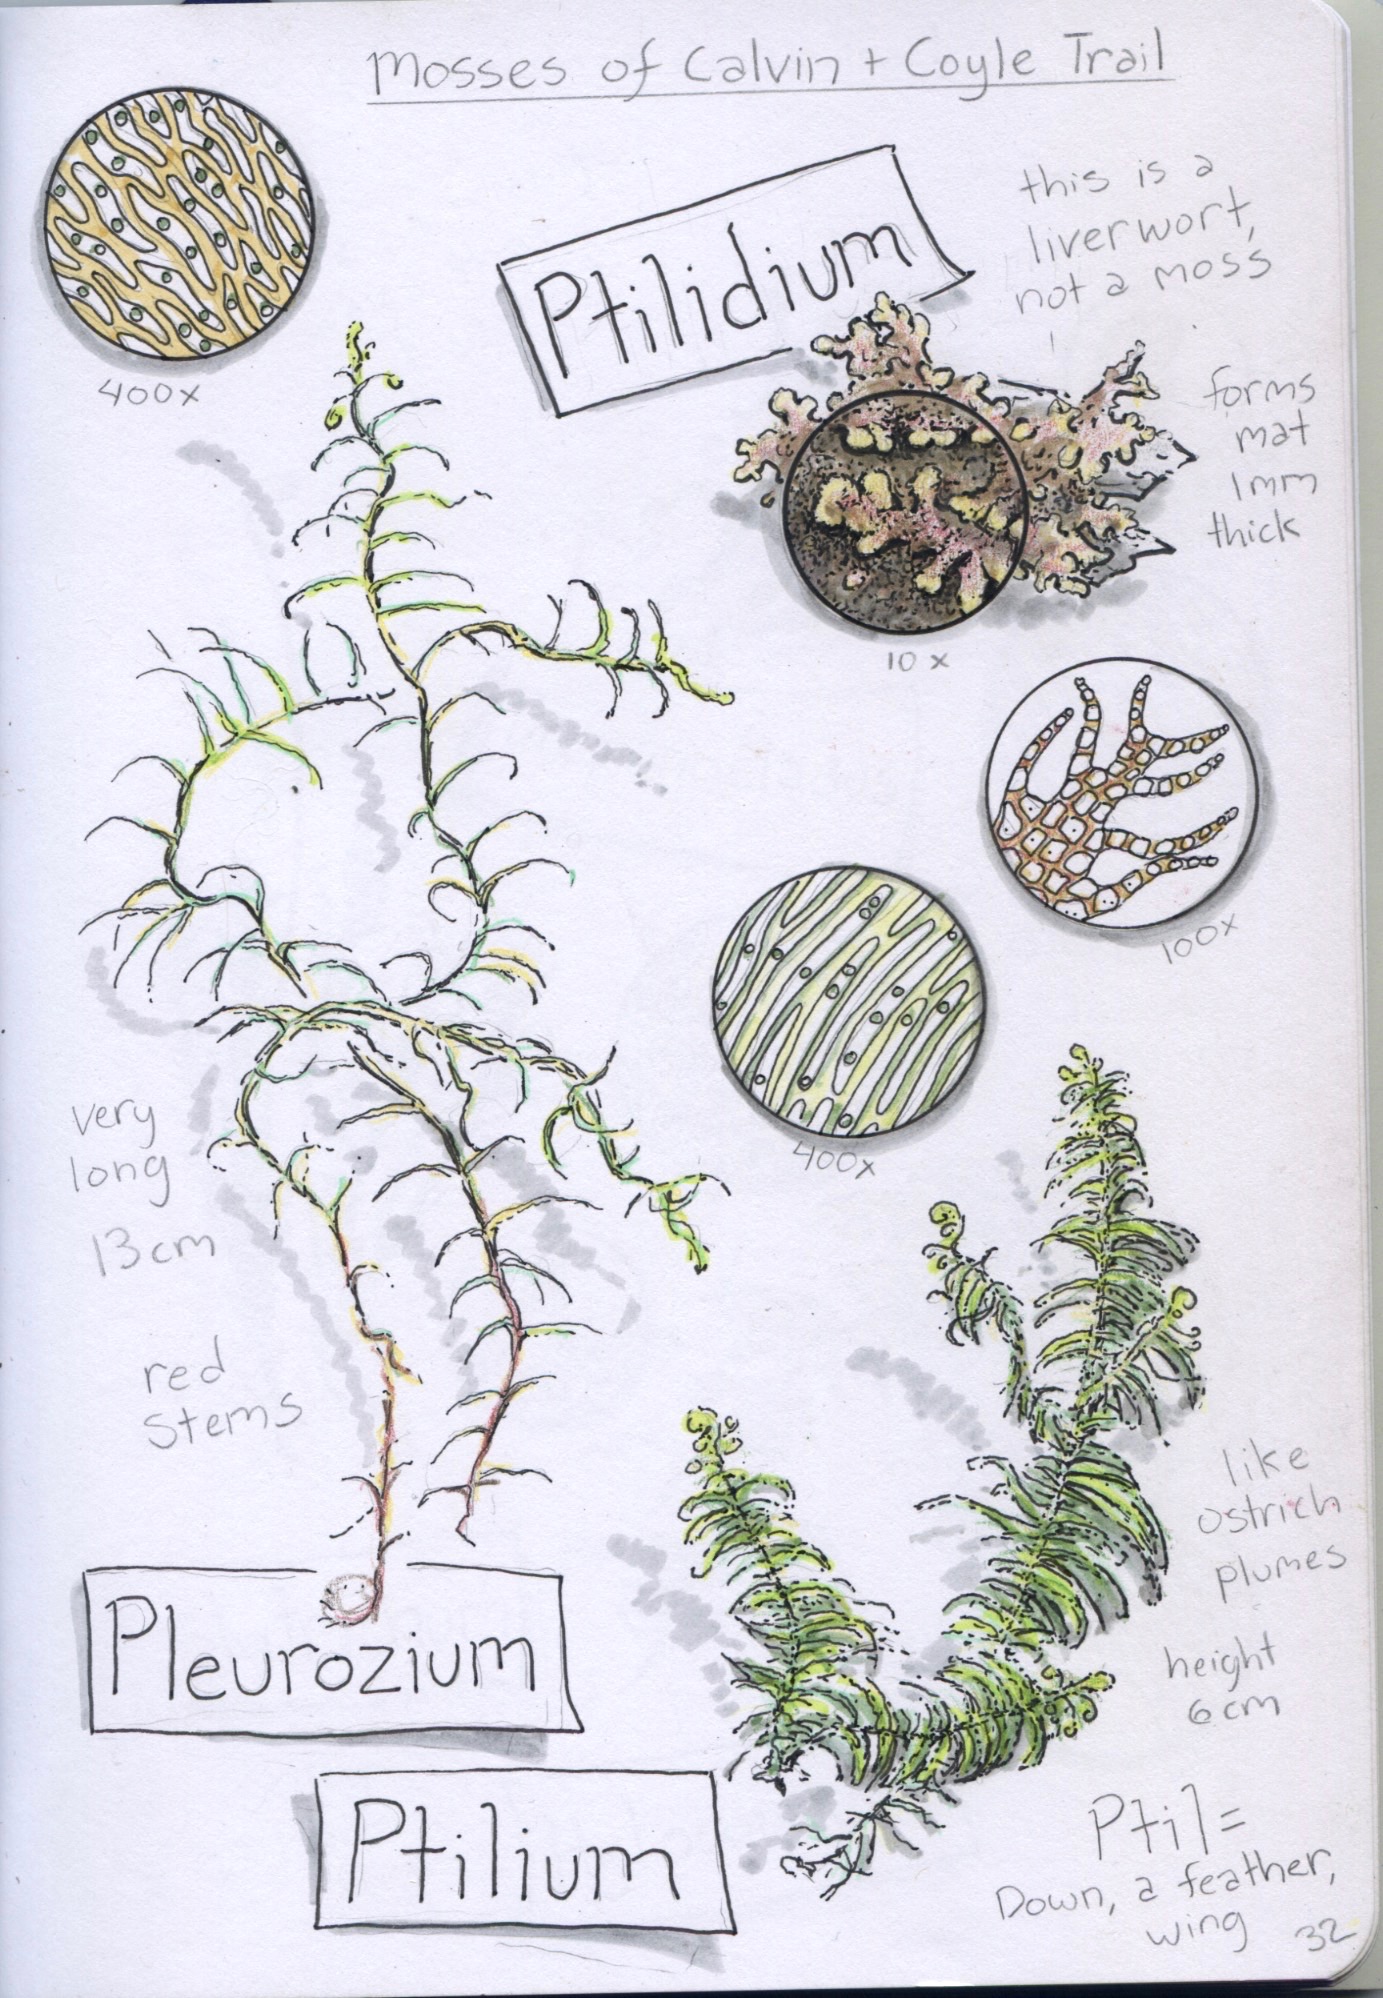 Mosses of Calvin + Coyle Trail
400x
Ptilidium
this is a
liverwort,
not a moss
forms
mat
1mm
thick
10x
100x
400x
very
long
13cm
red
stems
like
ostrich
plumes
height
6cm
Pleurozium
Ptilium
Ptil=
Down, a feather,
wing
32